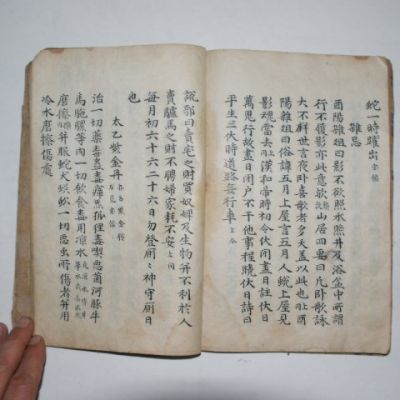 蛇一時躍出
雜忌
酉陽雜俎曰影不欲照水照井及浴盆中所謂
行不履影亦此意歟 山居四要曰凡臥歌詠
大不祥言夜臥喜歌者多夭蓋以此也 酉
陽雜俎曰俗諱五月上屋言五月人蛻上屋見
影魂當去 漢和帝時初令伏閉晝日註伏日
萬鬼行故閉日戶不干他事程曉伏日詩曰
平生三伏時道路無行車
說郛曰賣宅之財買奴婢及生物並不利於人
賣驢馬之財不聘婦家耗不安
每月初六十六二十六日勿登厠神守厠日
也
太乙紫金丹
治一切藥毒蠱毒瘴 狐狸毒 惡菌河豚牛
馬 等肉一切飲食毒用凉水
磨擦 並服蛇犬蜈蚣一切惡虫所傷者並用
冷水磨擦傷處